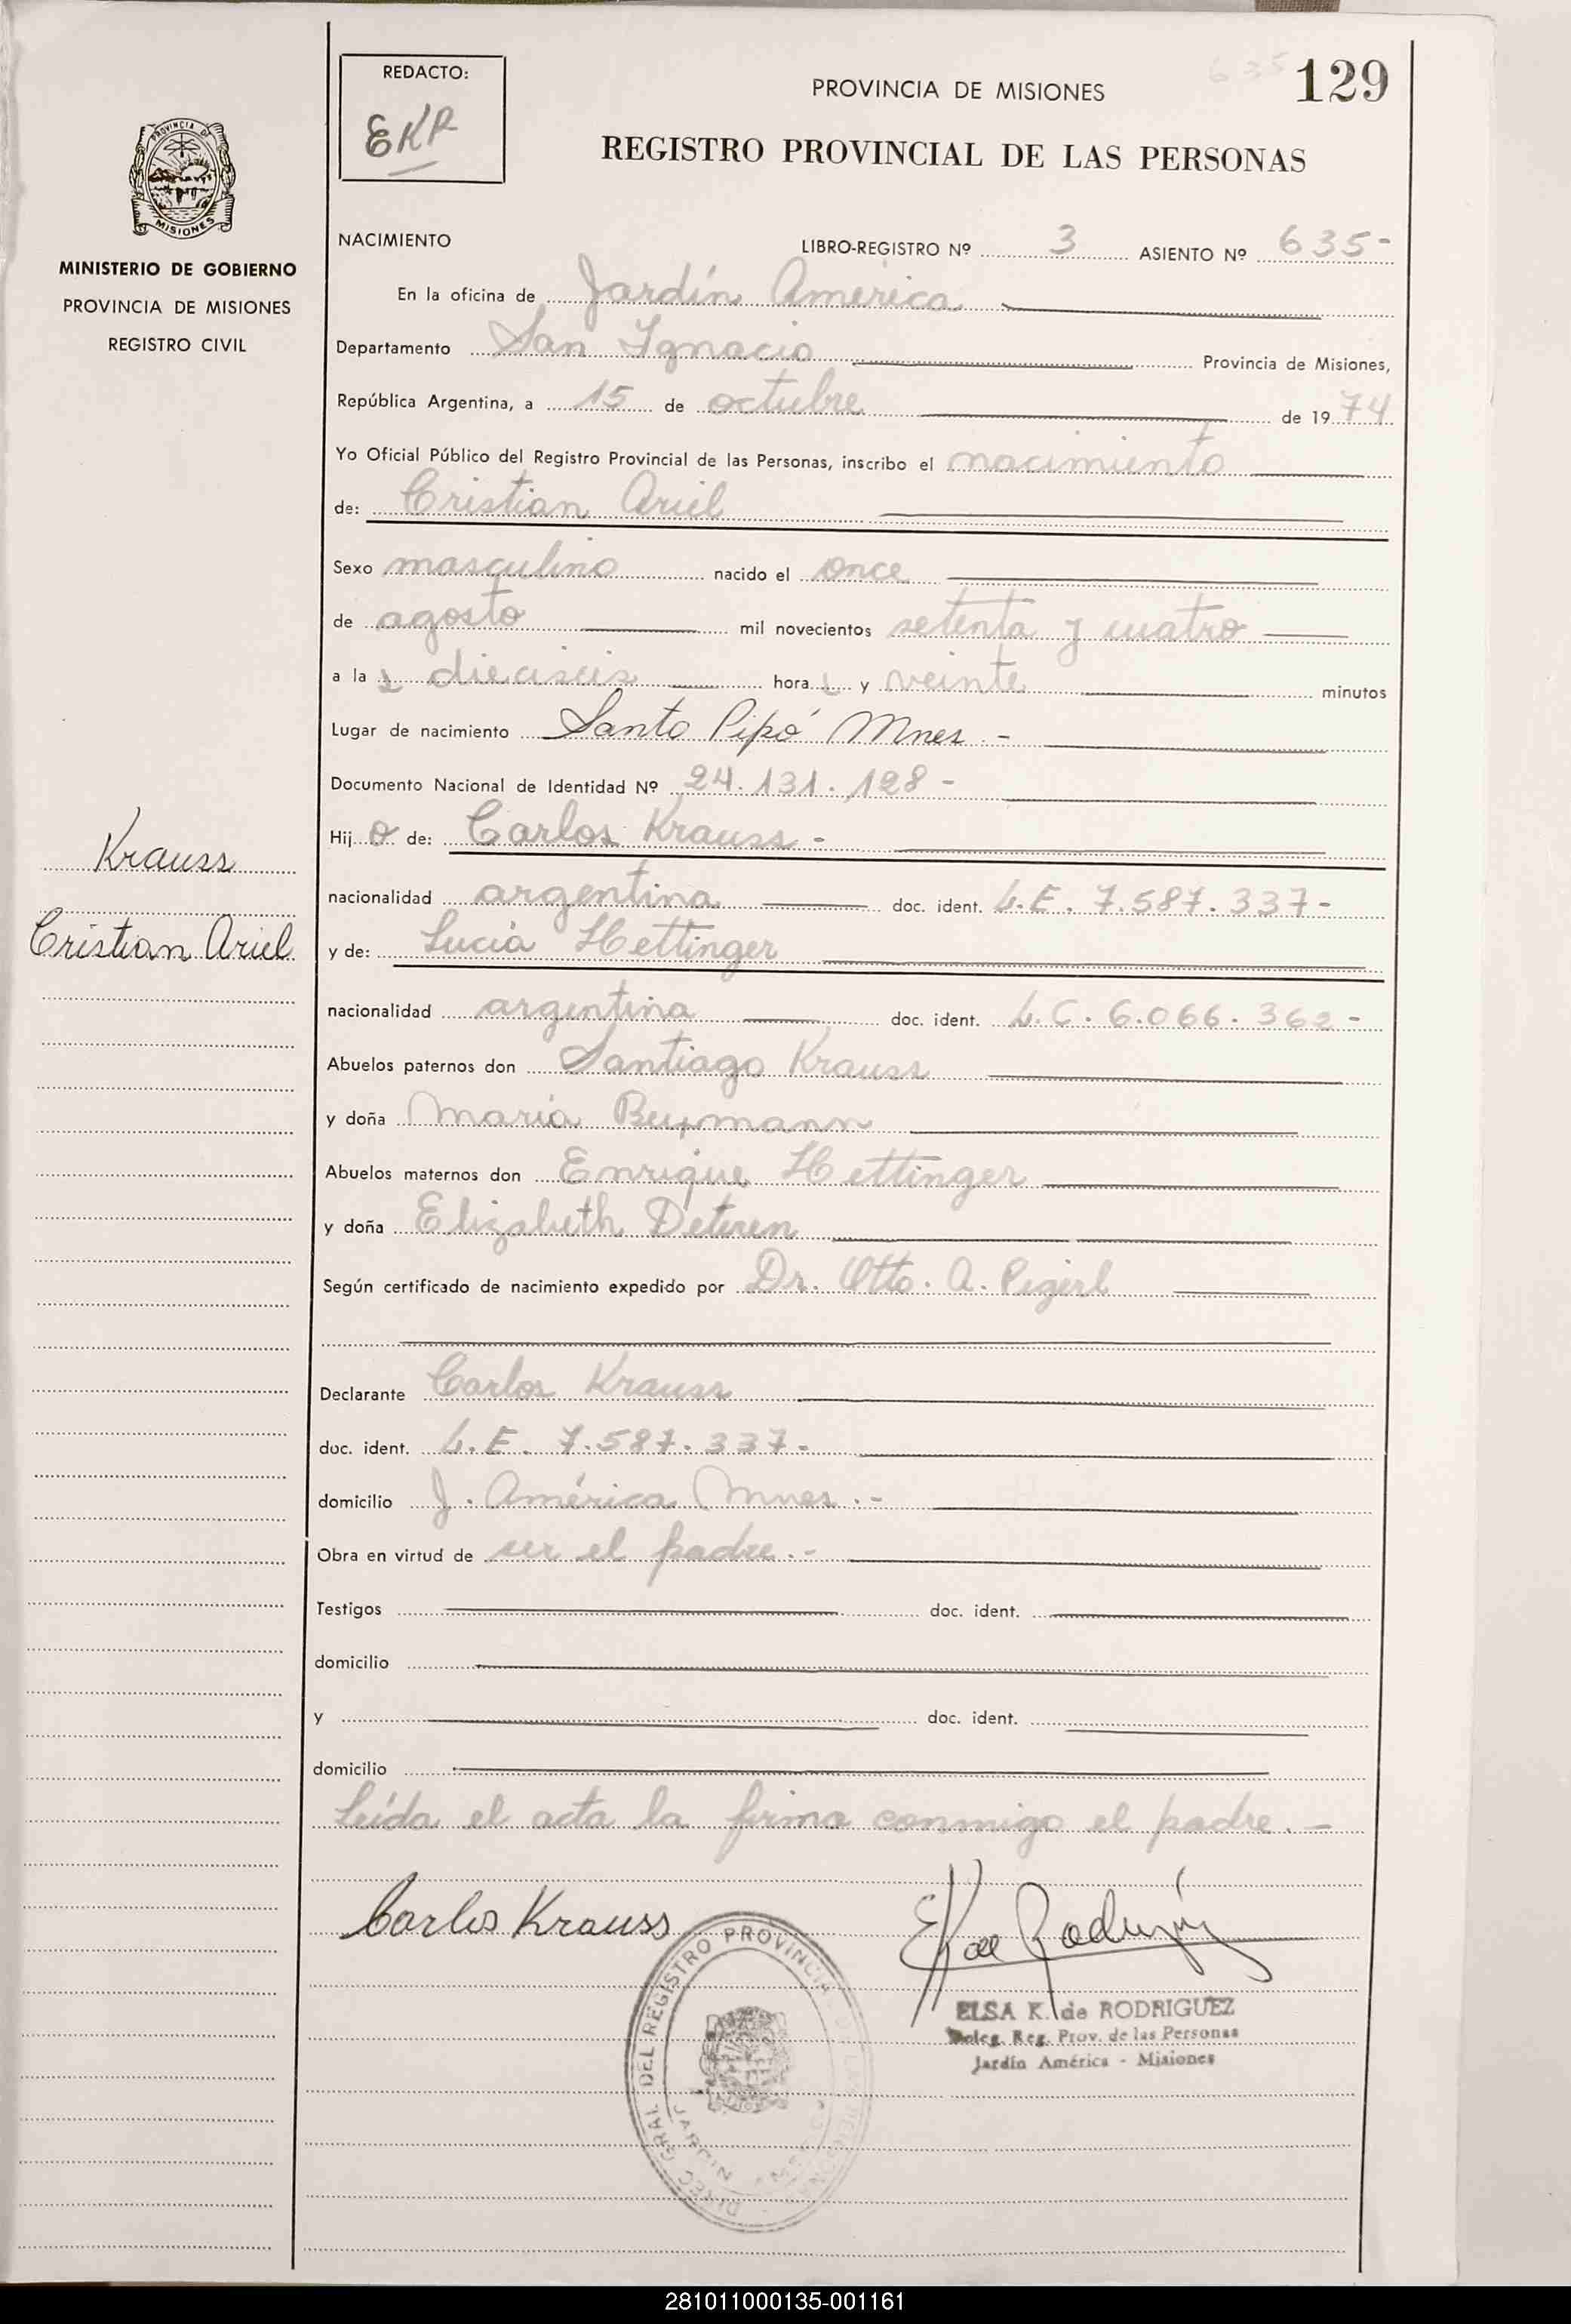 635 129
REDACTO:
EKR
PROVINCIA DE MISIONES
REGISTRO PROVINCIAL DE LAS PERSONAS
PROVINCIA DE
MISIONES
MINISTERIO DE GOBIERNO
PROVINCIA DE MISIONES
REGISTRO CIVIL
NACIMIENTO LIBRO-REGISTRO Nº 3 ASIENTO Nº 635-
En la oficina de Jardín América
Departamento San Ignacio Provincia de Misiones,
República Argentina, a 15 de octubre de 1974
Yo Oficial Público del Registro Provincial de las Personas, inscribo el nacimiento
de: Cristian Ariel
Sexo masculino nacido el once
de agosto mil novecientos setenta y cuatro
a las dieciseis horas y veinte minutos
Lugar de nacimiento Santo Pipó Mnes.-
Documento Nacional de Identidad Nº 24.131.128-
Hijo de: Carlos Krauss-
Krauss
nacionalidad argentina doc. ident. L.E. 7.587.337-
Cristian Ariel
y de: Lucia Hettinger
nacionalidad argentina doc. ident. L.C. 6.066.362-
Abuelos paternos don Santiago Krauss
y doña Maria
Abuelos maternos don Enrique Hettinger
y doña Elizabeth Deteren
Según certificado de nacimiento expedido por Dr. Otto. A.
Declarante Carlos Krauss
doc. ident. L.E. 7.587.337-
domicilio J. América Mnes.-
Obra en virtud de ser el padre.-
Testigos doc. ident.
domicilio
y doc. ident.
domicilio
Leída el acta la firma conmigo el padre.-
Carlos Krauss
EK de Rodriguez
DIREC. GRAL. DEL REGISTRO PROVINCIAL DE LAS PERSONAS
JARDIN
ELSA K. de RODRIGUEZ
Deleg. Reg. Prov. de las Personas
Jardín América - Misiones
281011000135-001161